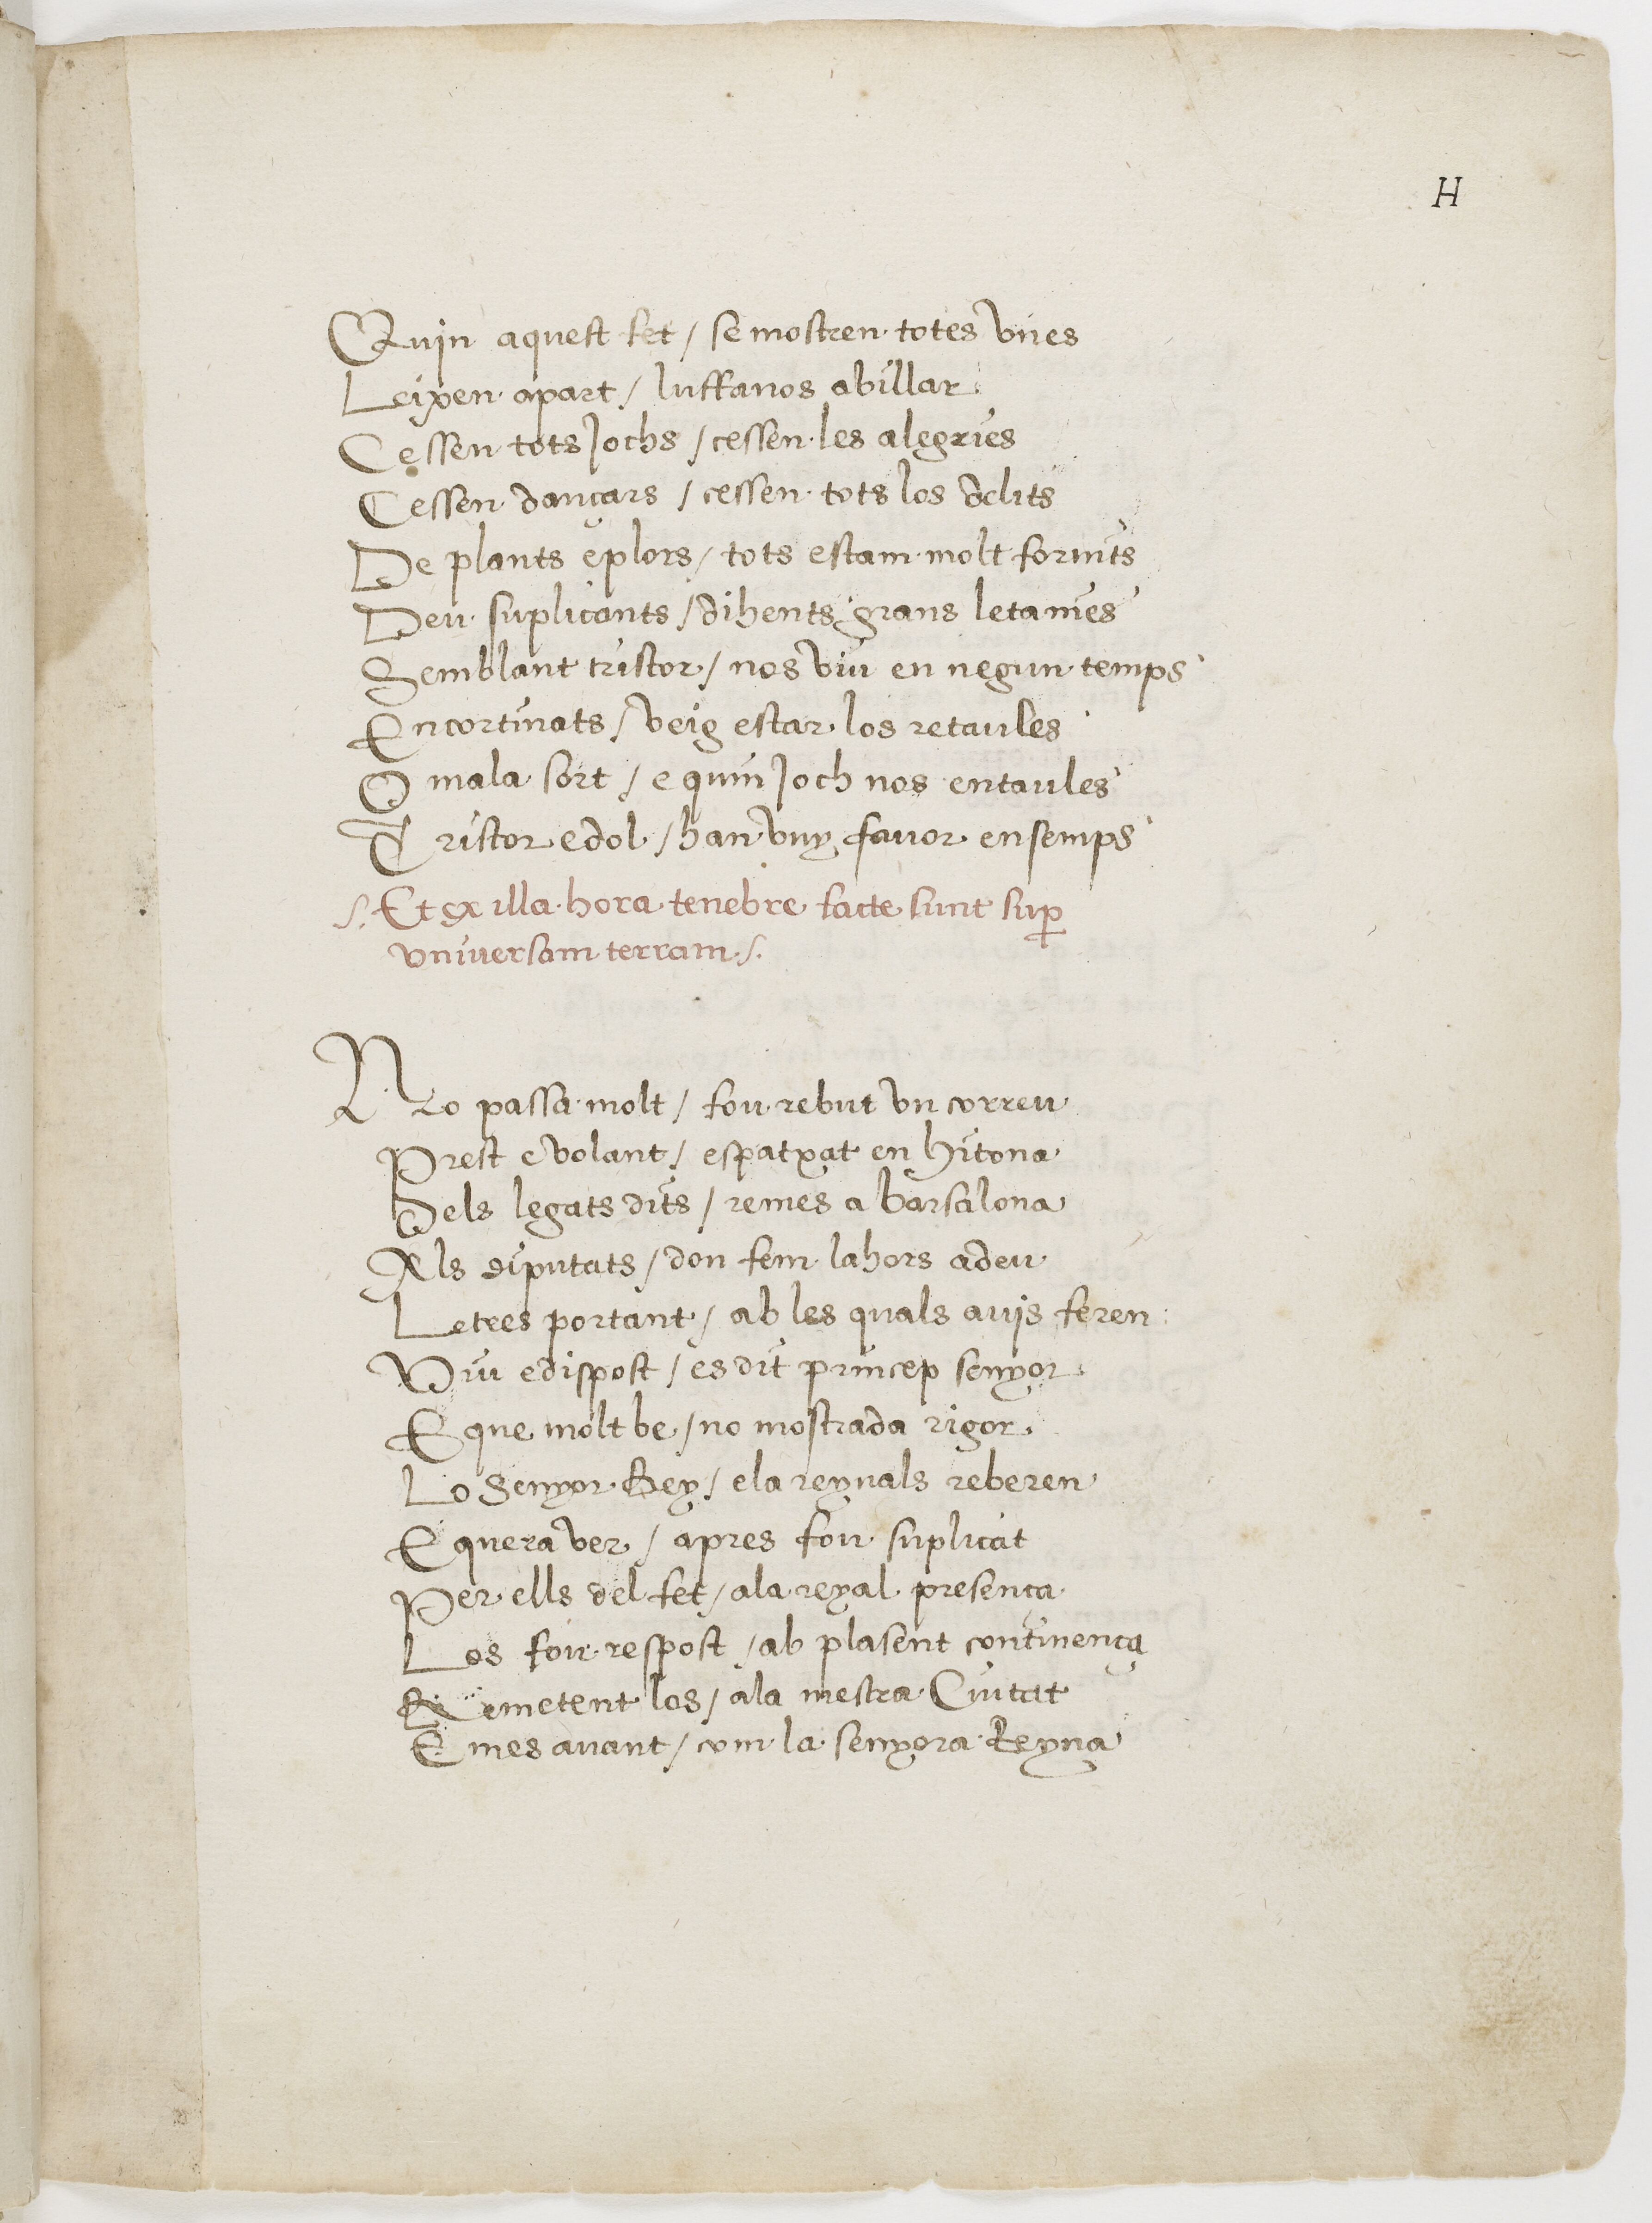 H
Quin aquest fet / se mostren totes vies
Leixen apart / luffanos abillar
Cessen tots jochs / cessen les alegries
Cessen dançars / cessen tots los delits
De plants e plors / tots estam molt fornits
Deu suplicants / dihents grans letanies
Semblant tristor / nos viu en negun temps
Encortinats / veig estar los retaules
O mala sort / e quin joch nos entaules
Tristor e dol / han vuy favor ensemps
/. Et ex illa hora tenebre facte sunt sup
vniversam terram /.
No passa molt / fou rebut vn correu
Prest e volant / espatxat en hitona
Dels legats dits / remes a barsalona
Als diputats / don fem lahors a deu
Letres portant / ab les quals avis feren
Viu e dispost / es dit princep senyor
E que molt be / no mostrada rigor
Lo Senyor Rey / e la reynals reberen
E quera ver / apres fou suplicat
Per ells del fet / a la reyal presença
Los fou respost / ab plasent continença
Remetent los / a la mestra Ciutat
E mes avant / com la senyora Reyna